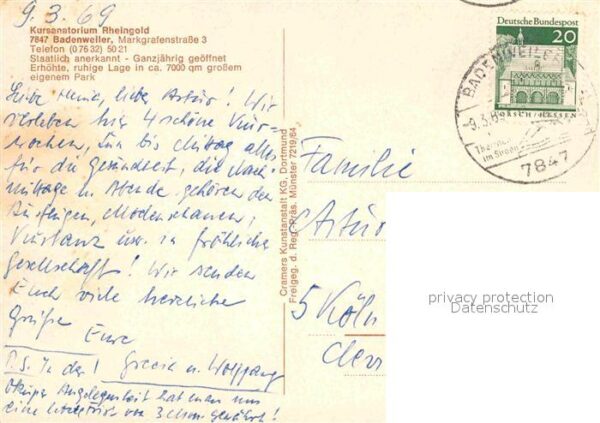 9.3.69
Kursanatorium Rheingold
7847 Badenweiler, Markgrafenstraße 3
Telefon (0 76 32) 50 21
Staatlich anerkannt - Ganzjährig geöffnet
Erhöhte, ruhige Lage in ca. 7000 qm großem
eigenem Park
lieber Artur! Wir
verleben hier 4 schöne Kur-
wochen, bis Mittag alles
für die Gesundheit, die Nach-
mittage u. Abende gehören den
Ausflügen, Modenschauen,
Kurtanz usw. in fröhlicher
Gesellschaft! Wir senden
Euch viele herzliche
Grüße
Eure
Grecia u. Wolfgang
P.S. In der
Angelegenheit hat man uns
eine von gewährt!
Cramers Kunstanstalt KG, Dortmund
Freigeg. d. Reg.-Präs. Münster 7219/64
Deutsche Bundespost
20
LORSCH/HESSEN
BADENWEILER
-9.3.6
im Süden
7847
Familie
Artur
5 Köln
privacy protection
Datenschutz